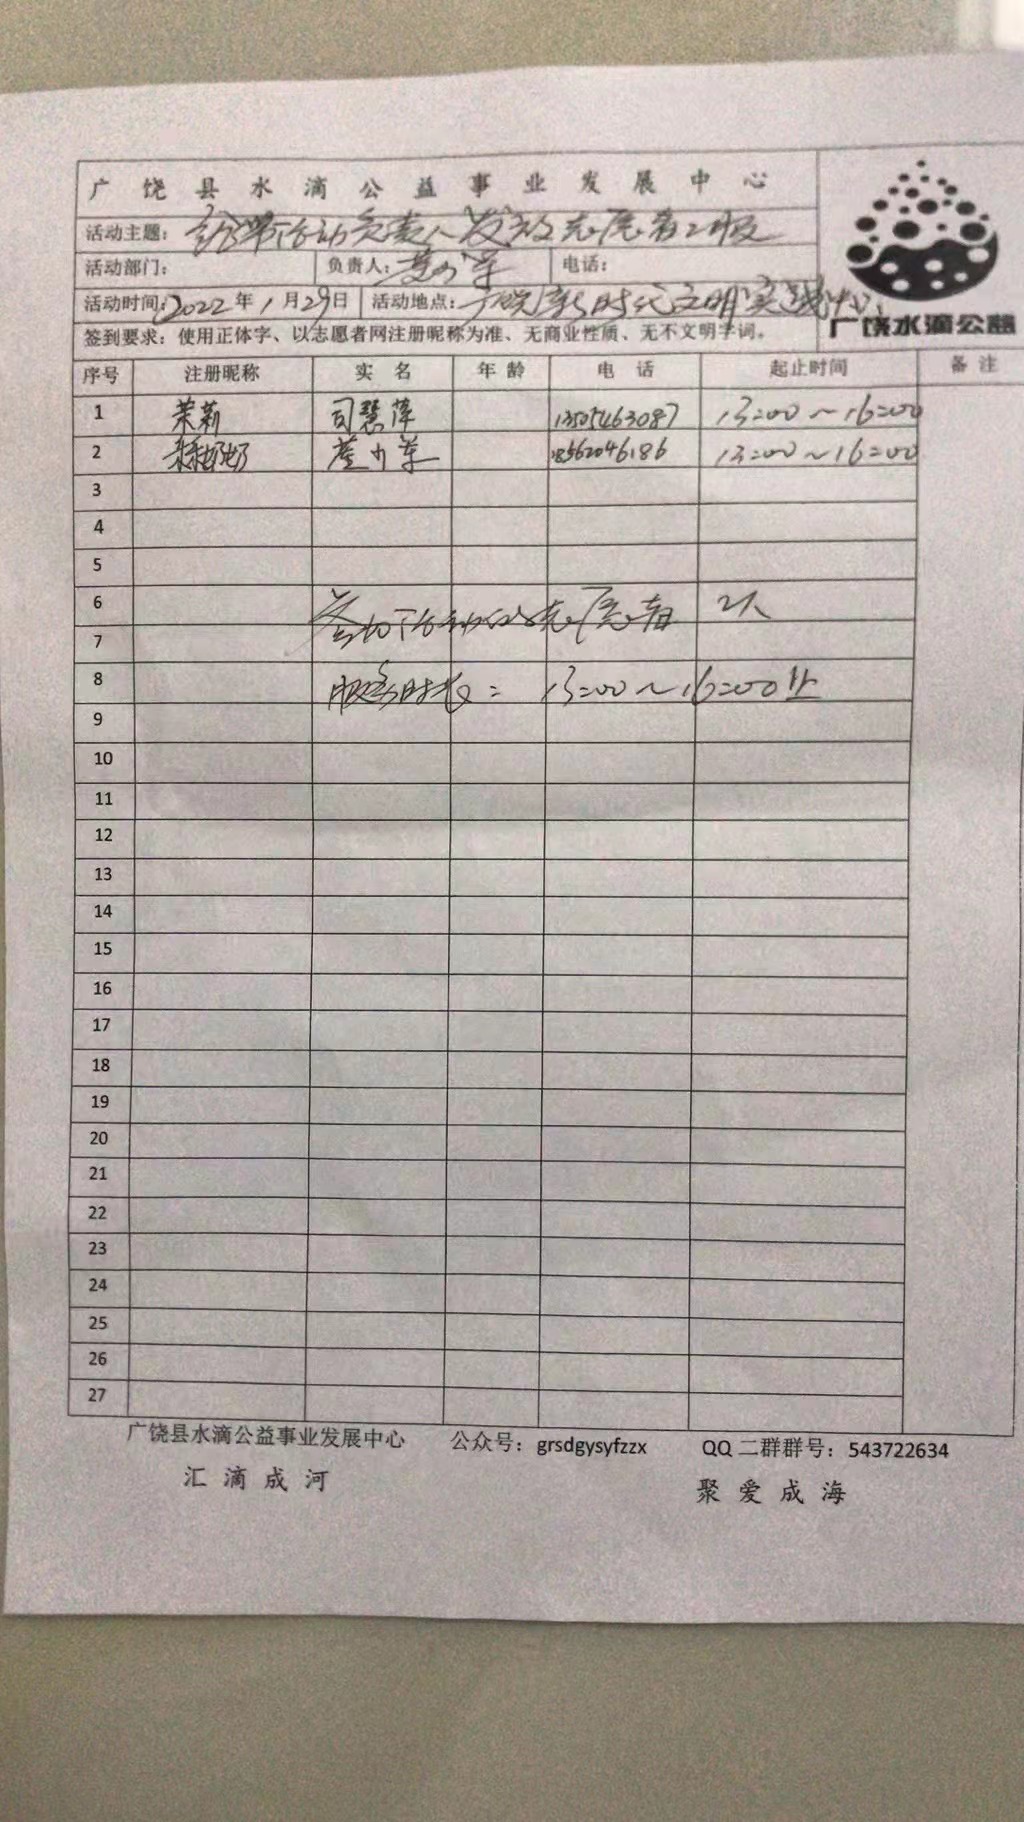 广饶县水滴公益事业发展中心
活动主题：给带活动负责人发放志愿者工服
活动部门： 负责人： 电话：
活动时间：2022年1月29日 活动地点：广饶新时代文明实践中心
广饶水滴公益
签到要求：使用正体字、以志愿者网注册昵称为准、无商业性质、无不文明字词。
序号 注册昵称 实名 年龄 电话 起止时间 备注
1 茉莉 司慧萍 13505463087 13:00～16:00
2 奶奶 18562046186 13:00～16:00
3
4
5
6 参加活动的志愿者 2人
7
8 服务时长：13:00～16:00止
9
10
11
12
13
14
15
16
17
18
19
20
21
22
23
24
25
26
27
广饶县水滴公益事业发展中心 公众号：grsdgysyfzzx QQ二群群号：543722634
汇滴成河 聚爱成海